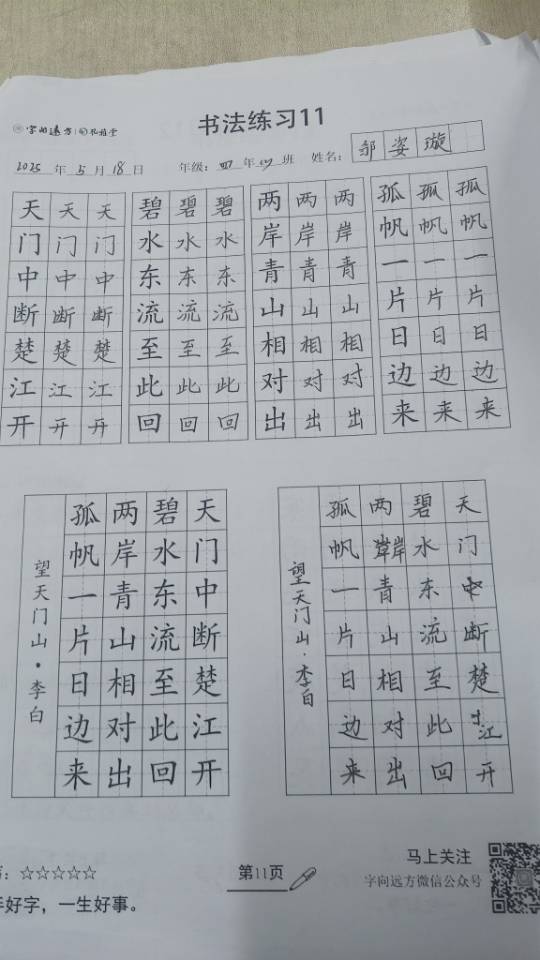 字向远方
书法练习11
2025年5月18日 年级：四年四班 姓名：邹姿璇
天天天
门门门
中中中
断断断
楚楚楚
江江江
开开开
碧碧碧
水水水
东东东
流流流
至至至
此此此
回回回
两两两
岸岸岸
青青青
山山山
相相相
对对对
出出出
孤孤孤
帆帆帆
一一一
片片片
日日日
边边边
来来来
天门中断楚江开
碧水东流至此回
两岸青山相对出
孤帆一片日边来
望天门山·李白
天门中断楚江开
碧水东流至此回
两岸青山相对出
孤帆一片日边来
望天门山·李白
：☆☆☆☆☆
好字，一生好事。
第11页
马上关注
字向远方微信公众号